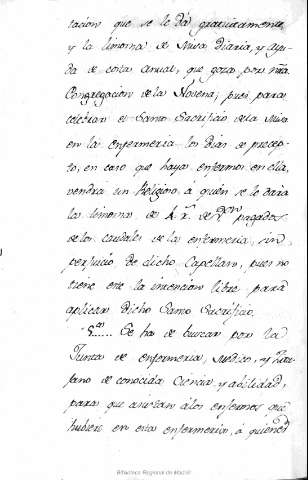 tacion que se le dá gratuitamente,
y la limosna de Misa Diaria, y Ayu-
da de costa anual, que goza por nra
Congregacion de la Novena; pues para
celebrar el Santo Sacrificio de la Misa
en la enfermeria los dias de precep-
to, en caso que haya enfermos en ella,
vendrá un Religioso, à quien se le daria
la limosna de rs. de Von. pagados
de los caudales de la enfermeria, sin
perjuicio de dicho Capellan, pues no
tiene este la intencion libre para
aplicar dicho Santo Sacrificio.
Se ha de buscar por la
Junta de enfermeria, Medico, y Ziru-
jano de conocida Ciencia y abilidad,
para que asistan à los enfermos que
hubiere en esta enfermeria, à quienes
Biblioteca Regional de Madrid